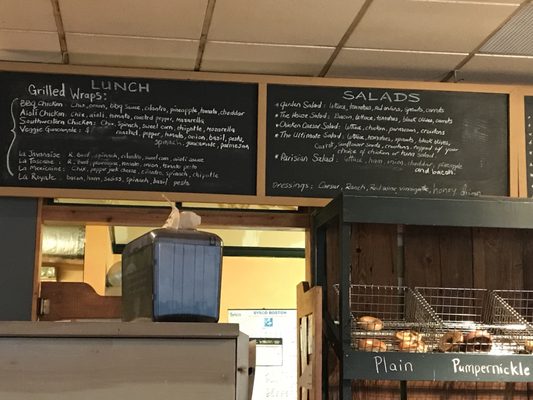 LUNCH
Grilled Wraps:
BBQ Chicken: Chix, onion, bbq sauce, cilantro, pineapple, tomato, cheddar
Aioli Chicken: Chix, aioli, tomato, roasted pepper, mozzarella
Southwestern Chicken: Chix, Spinach, sweet corn, chipotle, mozzarella
Veggie Guacamole:
roasted pepper, tomato, onion, basil, pesto,
spinach, guacamole, parmesan
La Javanaise: R. Beef, spinach, cilantro, sweet corn, aioli sauce
La Toscane: R. Beef, parmesan, onion, tomato, pesto
La Mexicaine: Chix, pepper jack cheese, cilantro, spinach, chipotle
La Royale: bacon, ham, swiss, spinach, basil, pesto
SALADS
Garden Salad: lettuce, tomatoes, red onions, sprouts, carrots
The House Salad: Bacon, lettuce, tomatoes, black olives, carrots
Chicken Caesar Salad: lettuce, chicken, parmesan, croutons
The Ultimate Salad: lettuce, tomatoes, carrots, black olives, sprouts,
sunflower seeds, croutons, topped w/ your
choice of chicken or tuna salad
Parisian Salad: lettuce, ham, onion, cheddar, pineapple
and bacon.
Dressings: Caesar, Ranch, Red wine vinaigrette, honey
SYSCO BOSTON
Plain
Pumpernickle